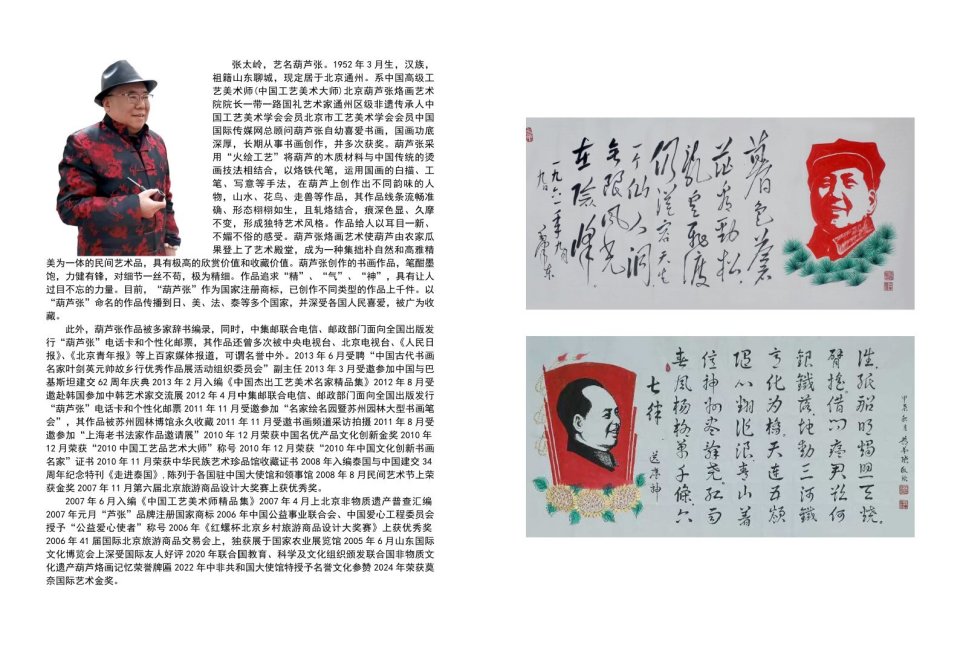 张太岭，艺名葫芦张。1952 年 3 月生，汉族，
祖籍山东聊城，现定居于北京通州。系中国高级工
艺美术师(中国工艺美术大师)北京葫芦张烙画艺术
院院长一带一路国礼艺术家通州区级非遗传承人中
国工艺美术学会会员北京市工艺美术学会会员中国
国际传媒网总顾问葫芦张自幼喜爱书画，国画功底
深厚，长期从事书画创作，并多次获奖。葫芦张采
用“火绘工艺”将葫芦的木质材料与中国传统的烫
画技法相结合，以烙铁代笔，运用国画的白描、工
笔、写意等手法，在葫芦上创作出不同韵味的人
物，山水、花鸟、走兽等作品，其作品线条流畅准
确、形态栩栩如生，且轧烙结合，痕深色显、久摩
不变，形成独特艺术风格。作品给人以耳目一新、
不媚不俗的感受。葫芦张烙画艺术使葫芦由农家瓜
果登上了艺术殿堂，成为一种集拙朴自然和高雅精
美为一体的民间艺术品，具有极高的欣赏价值和收藏价值。葫芦张创作的书画作品，笔酣墨
饱，力健有锋，对细节一丝不苟，极为精细。作品追求“精”、“气”、“神”，具有让人
过目不忘的力量。目前，“葫芦张”作为国家注册商标，已创作不同类型的作品上千件。以
“葫芦张”命名的作品传播到日、美、法、泰等多个国家，并深受各国人民喜爱，被广为收
藏。
此外，葫芦张作品被多家辞书编录，同时，中集邮联合电信、邮政部门面向全国出版发
行“葫芦张”电话卡和个性化邮票，其作品还曾多次被中央电视台、北京电视台、《人民日
报》、《北京青年报》等上百家媒体报道，可谓名誉中外。2013 年 6 月受聘“中国古代书画
名家叶剑英元帅故乡行优秀作品展活动组织委员会”副主任 2013 年 3 月受邀参加中国与巴
基斯坦建交 62 周年庆典 2013 年 2 月入编《中国杰出工艺美术名家精品集》2012 年 8 月受
邀赴韩国参加中韩艺术家交流展 2012 年 4 月中集邮联合电信、邮政部门面向全国出版发行
“葫芦张”电话卡和个性化邮票 2011 年 11 月受邀参加“名家绘名园暨苏州园林大型书画笔
会”，其作品被苏州园林博馆永久收藏 2011 年 11 月受邀书画频道采访拍摄 2011 年 8 月受
邀参加“上海老书法家作品邀请展”2010 年 12 月荣获中国名优产品文化创新金奖 2010 年
12 月荣获“2010 中国工艺品艺术大师”称号 2010 年 12 月荣获“2010 年中国文化创新书画
名家”证书 2010 年 11 月荣获中华民族艺术珍品馆收藏证书 2008 年入编泰国与中国建交 34
周年纪念特刊《走进泰国》,陈列于各国驻中国大使馆和领事馆 2008 年 8 月民间艺术节上荣
获金奖 2007 年 11 月第六届北京旅游商品设计大奖赛上获优秀奖。
2007 年 6 月入编《中国工艺美术师精品集》2007 年 4 月上北京非物质遗产普查汇编
2007 年元月“芦张”品牌注册国家商标 2006 年中国公益事业联合会、中国爱心工程委员会
授予“公益爱心使者”称号 2006 年《红螺杯北京乡村旅游商品设计大奖赛》上获优秀奖
2006 年 41 届国际北京旅游商品交易会上，独获展于国家农业展览馆 2005 年 6 月山东国际
文化博览会上深受国际友人好评 2020 年联合国教育、科学及文化组织颁发联合国非物质文
化遗产葫芦烙画记忆荣誉牌匾 2022 年中非共和国大使馆特授予名誉文化参赞 2024 年荣获莫
奈国际艺术金奖。
暮色苍
茫看劲松
乱云飞渡
仍从容天生
一个仙人洞
无限风光
在险峰
一九六一年九月
九日
毛泽东
七律
送瘟神
春风杨柳万千条六
亿神州尽舜尧红雨
随心翻作浪青山着
意化为桥天连五岭
银锄落地动三河铁
臂摇借问瘟君欲何
往纸船明烛照天烧